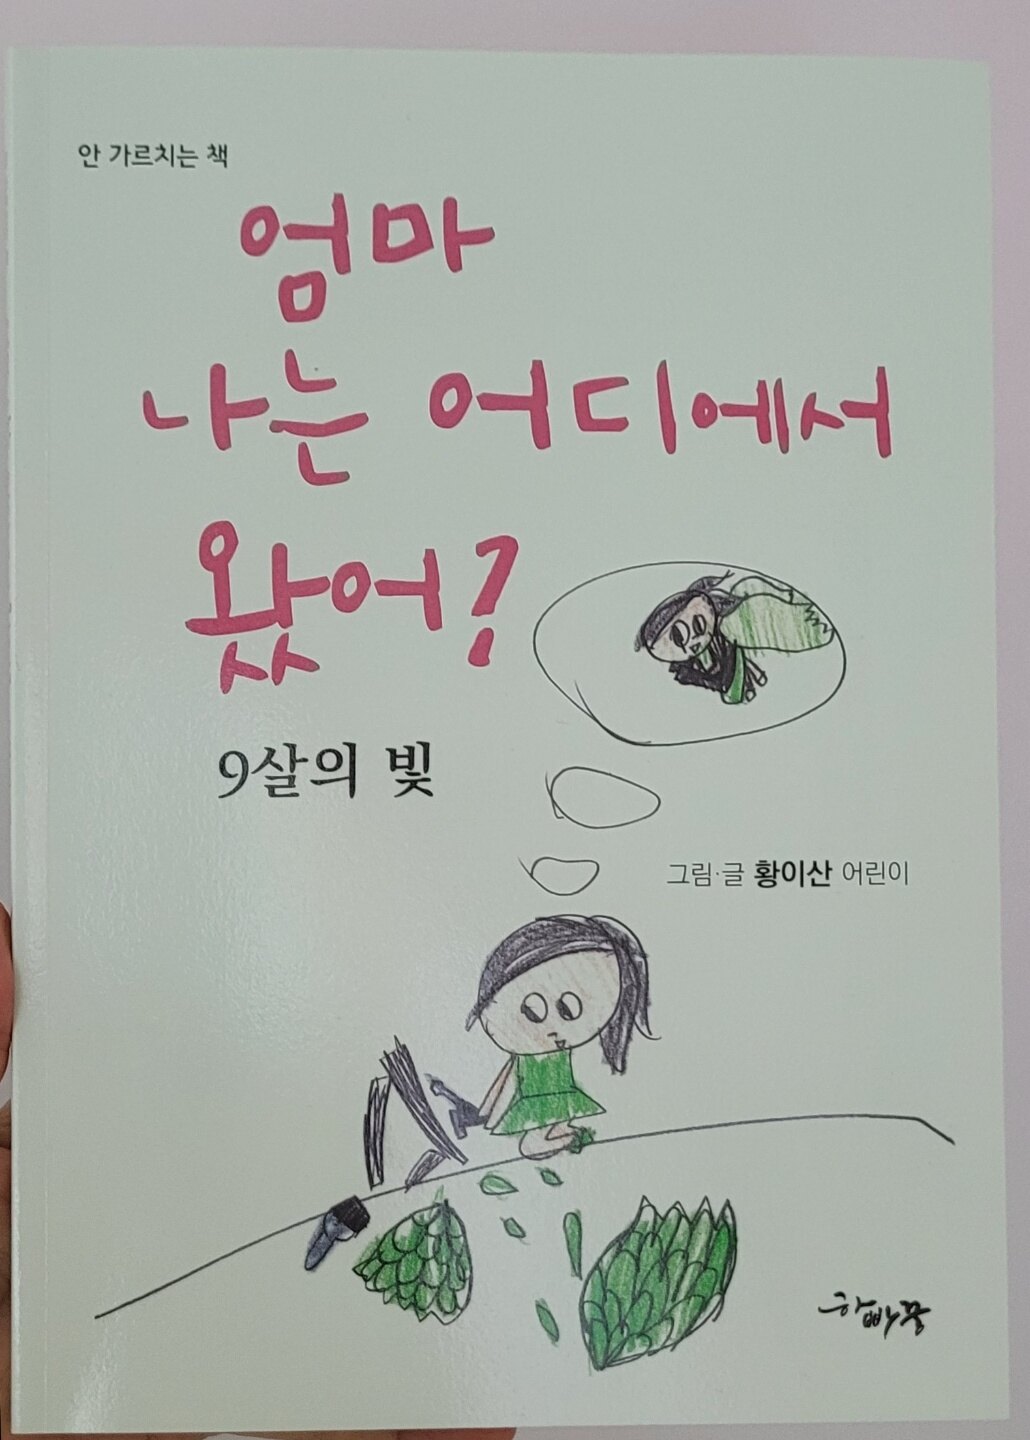 안 가르치는 책
엄마
나는 어디에서
왔어?
9살의 빛
그림·글 황이산 어린이
하빠꿍